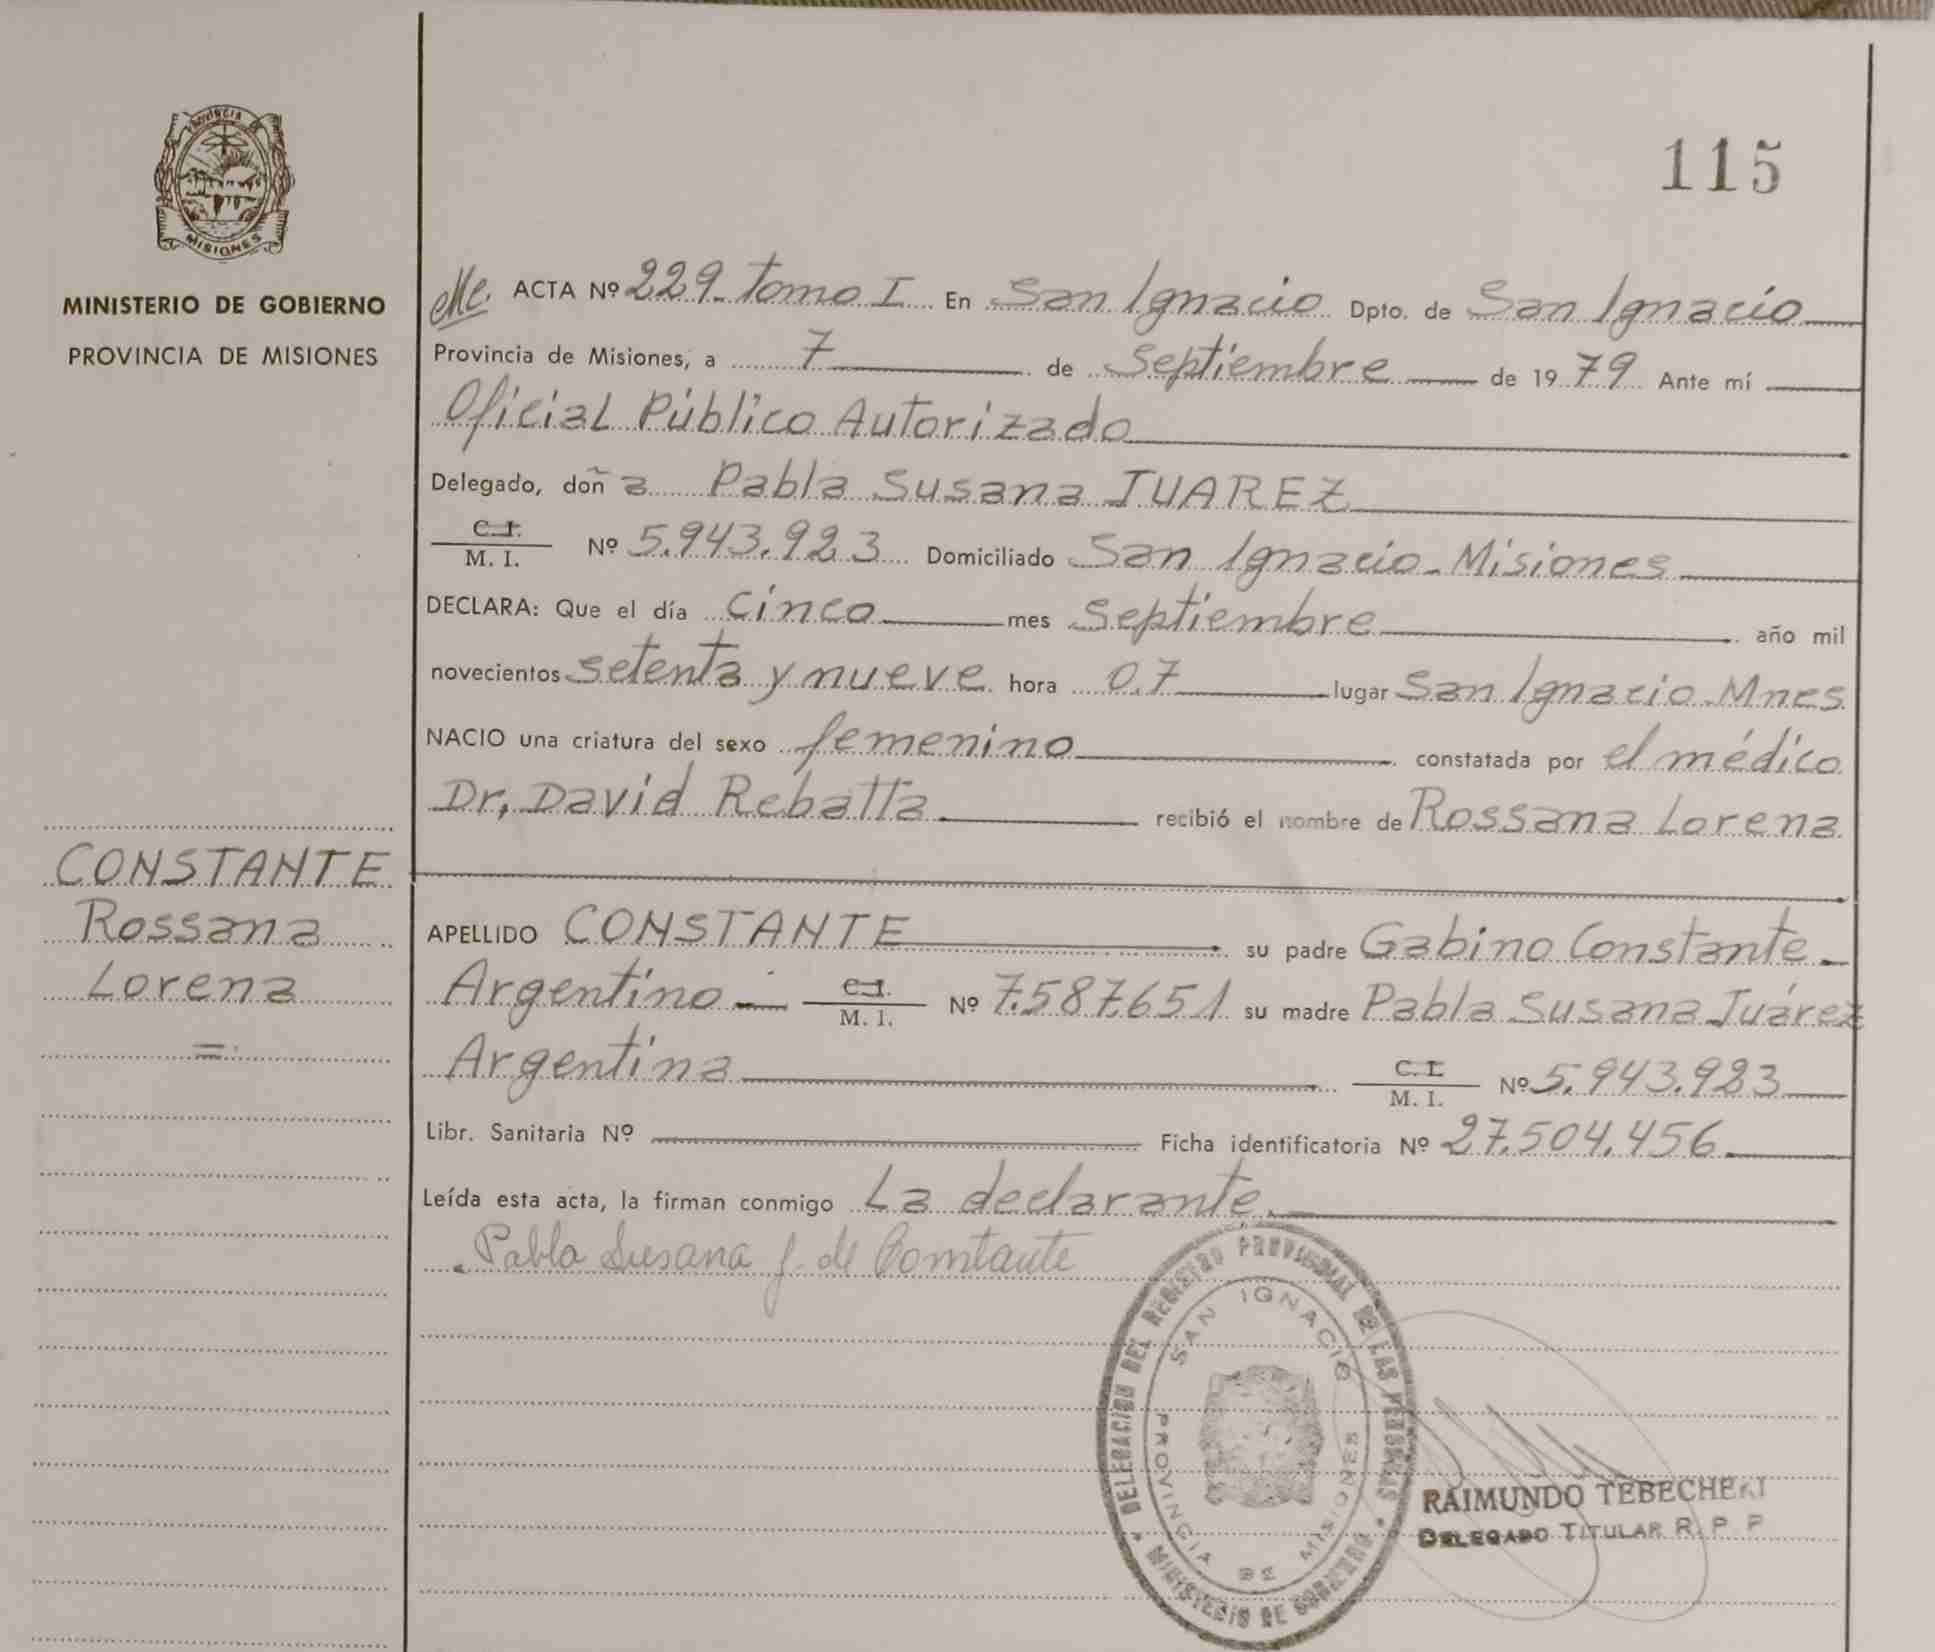 115
PROVINCIA DE
MISIONES
MINISTERIO DE GOBIERNO
PROVINCIA DE MISIONES
ACTA Nº 229 Tomo I En San Ignacio Dpto. de San Ignacio
Provincia de Misiones, a 7 de Septiembre de 1979 Ante mí
Oficial Público Autorizado
Delegado, doña Pabla Susana JUAREZ
C.I.
M. I. Nº 5.943.923 Domiciliado San Ignacio - Misiones
DECLARA: Que el día cinco mes Septiembre año mil
novecientos setenta y nueve hora 07 lugar San Ignacio - Mnes
NACIO una criatura del sexo femenino constatada por el médico
Dr. David Rebatta recibió el nombre de Rossana Lorena
CONSTANTE
Rossana
Lorena
=
APELLIDO CONSTANTE su padre Gabino Constante
Argentino C.I. M. I. Nº 7.587.651 su madre Pabla Susana Juárez
Argentina C.I. M. I. Nº 5.943.923
Libr. Sanitaria Nº Ficha identificatoria Nº 27.504.456
Leída esta acta, la firman conmigo La declarante.
Pabla Susana J. de Constante
DELEGACION DEL REGISTRO PROVINCIAL DE LAS PERSONAS
SAN IGNACIO
PROVINCIA DE MISIONES
MINISTERIO DE GOBIERNO
RAIMUNDO
DELEGADO TITULAR R. P. P.